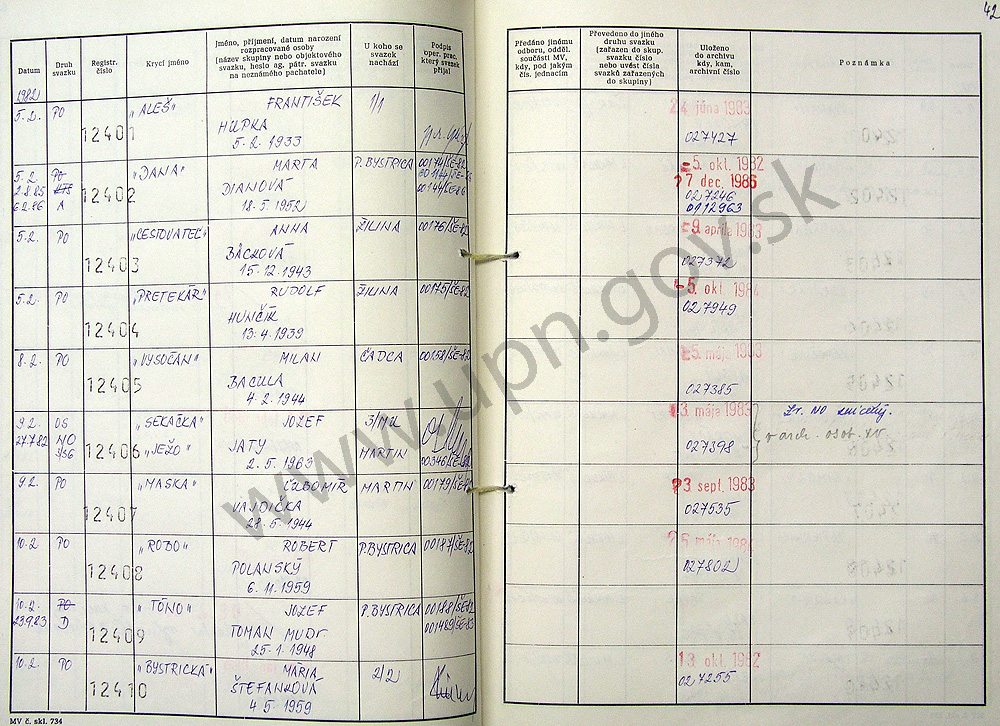 42
Datum
Druh svazku
Registr. číslo
Krycí jméno
Jméno, příjmení, datum narození
rozpracované osoby
(název skupiny nebo objektového
svazku, heslo ag. pátr. svazku
na neznámého pachatele)
U koho se
svazek
nachází
Podpis
oper. prac.
který svazek
přijal
Předáno jinému
odboru, odděl.
součásti MV,
kdy, pod jakým
čís. jednacím
Převedeno do jiného
druhu svazku
(zařazen do skup.
svazku číslo
nebo uvést čísla
svazků zařazených
do skupiny)
Uloženo
do archivu
kdy, kam,
archivní číslo
Poznámka
1982
5.2. PO 12401 „ALEŠ" FRANTIŠEK 1/1 24 júna 1983
HUPKA 027427
5. 2. 1933
5.2. PO „DANA" MARTA P. BYSTRICA 00174/ŠE-82 5. okt. 1982
2.8.85 12402 DIANOVÁ 7 dec. 1986
6.2.86 A 18. 5. 1952 00144/ŠE-86 027246
0112963
5.2. PO „CESTOVATEĽ" ANNA ŽILINA 00176/ŠE-82 9 apríla 1983
12403 BÁCKOVÁ 027372
15. 12. 1943
5.2. PO „PRETEKÁR" RUDOLF ŽILINA 00175/ŠE-82 5. okt. 1984
12404 HUNČÍK 027949
13. 4. 1939
8.2. PO „VYSOČAN" MILAN ČADCA 00158/ŠE-82 5 mája 1983
12405 BACULA 027385
4. 2. 1944
9.2. OS „SEKAČKA" JOZEF 3/ 3 mája 1983
27.7.82 NO 12406 „JEŽO" JATY MARTIN 00346/ŠE-82 027398
2. 5. 1963
9.2. PO „MASKA" ĽUBOMÍR MARTIN 00179/ŠE-82 3. sept. 1983
12407 VAJDIČKA 027535
28. 5. 1944
10.2. PO „ROBO" ROBERT P. BYSTRICA 00187/ŠE-82
12408 POLANSKÝ 027802
6. 11. 1959
10.2. PO „TÓNO" JOZEF P. BYSTRICA 00188/ŠE-82
23.9.83 D 12409 TOMAN MUDr. 001489/ŠE-83
25. 1. 1948
10.2. PO „BYSTRICKÁ" MÁRIA 2/2 13 okt. 1982
12410 ŠTEFANKOVÁ 027255
4. 5. 1959
MV č. skl. 734
www.upn.gov.sk